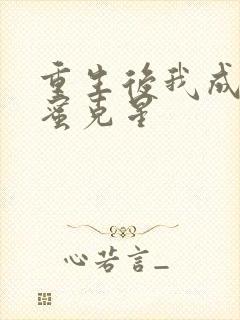 重生後我成
蜜克星
心若言_